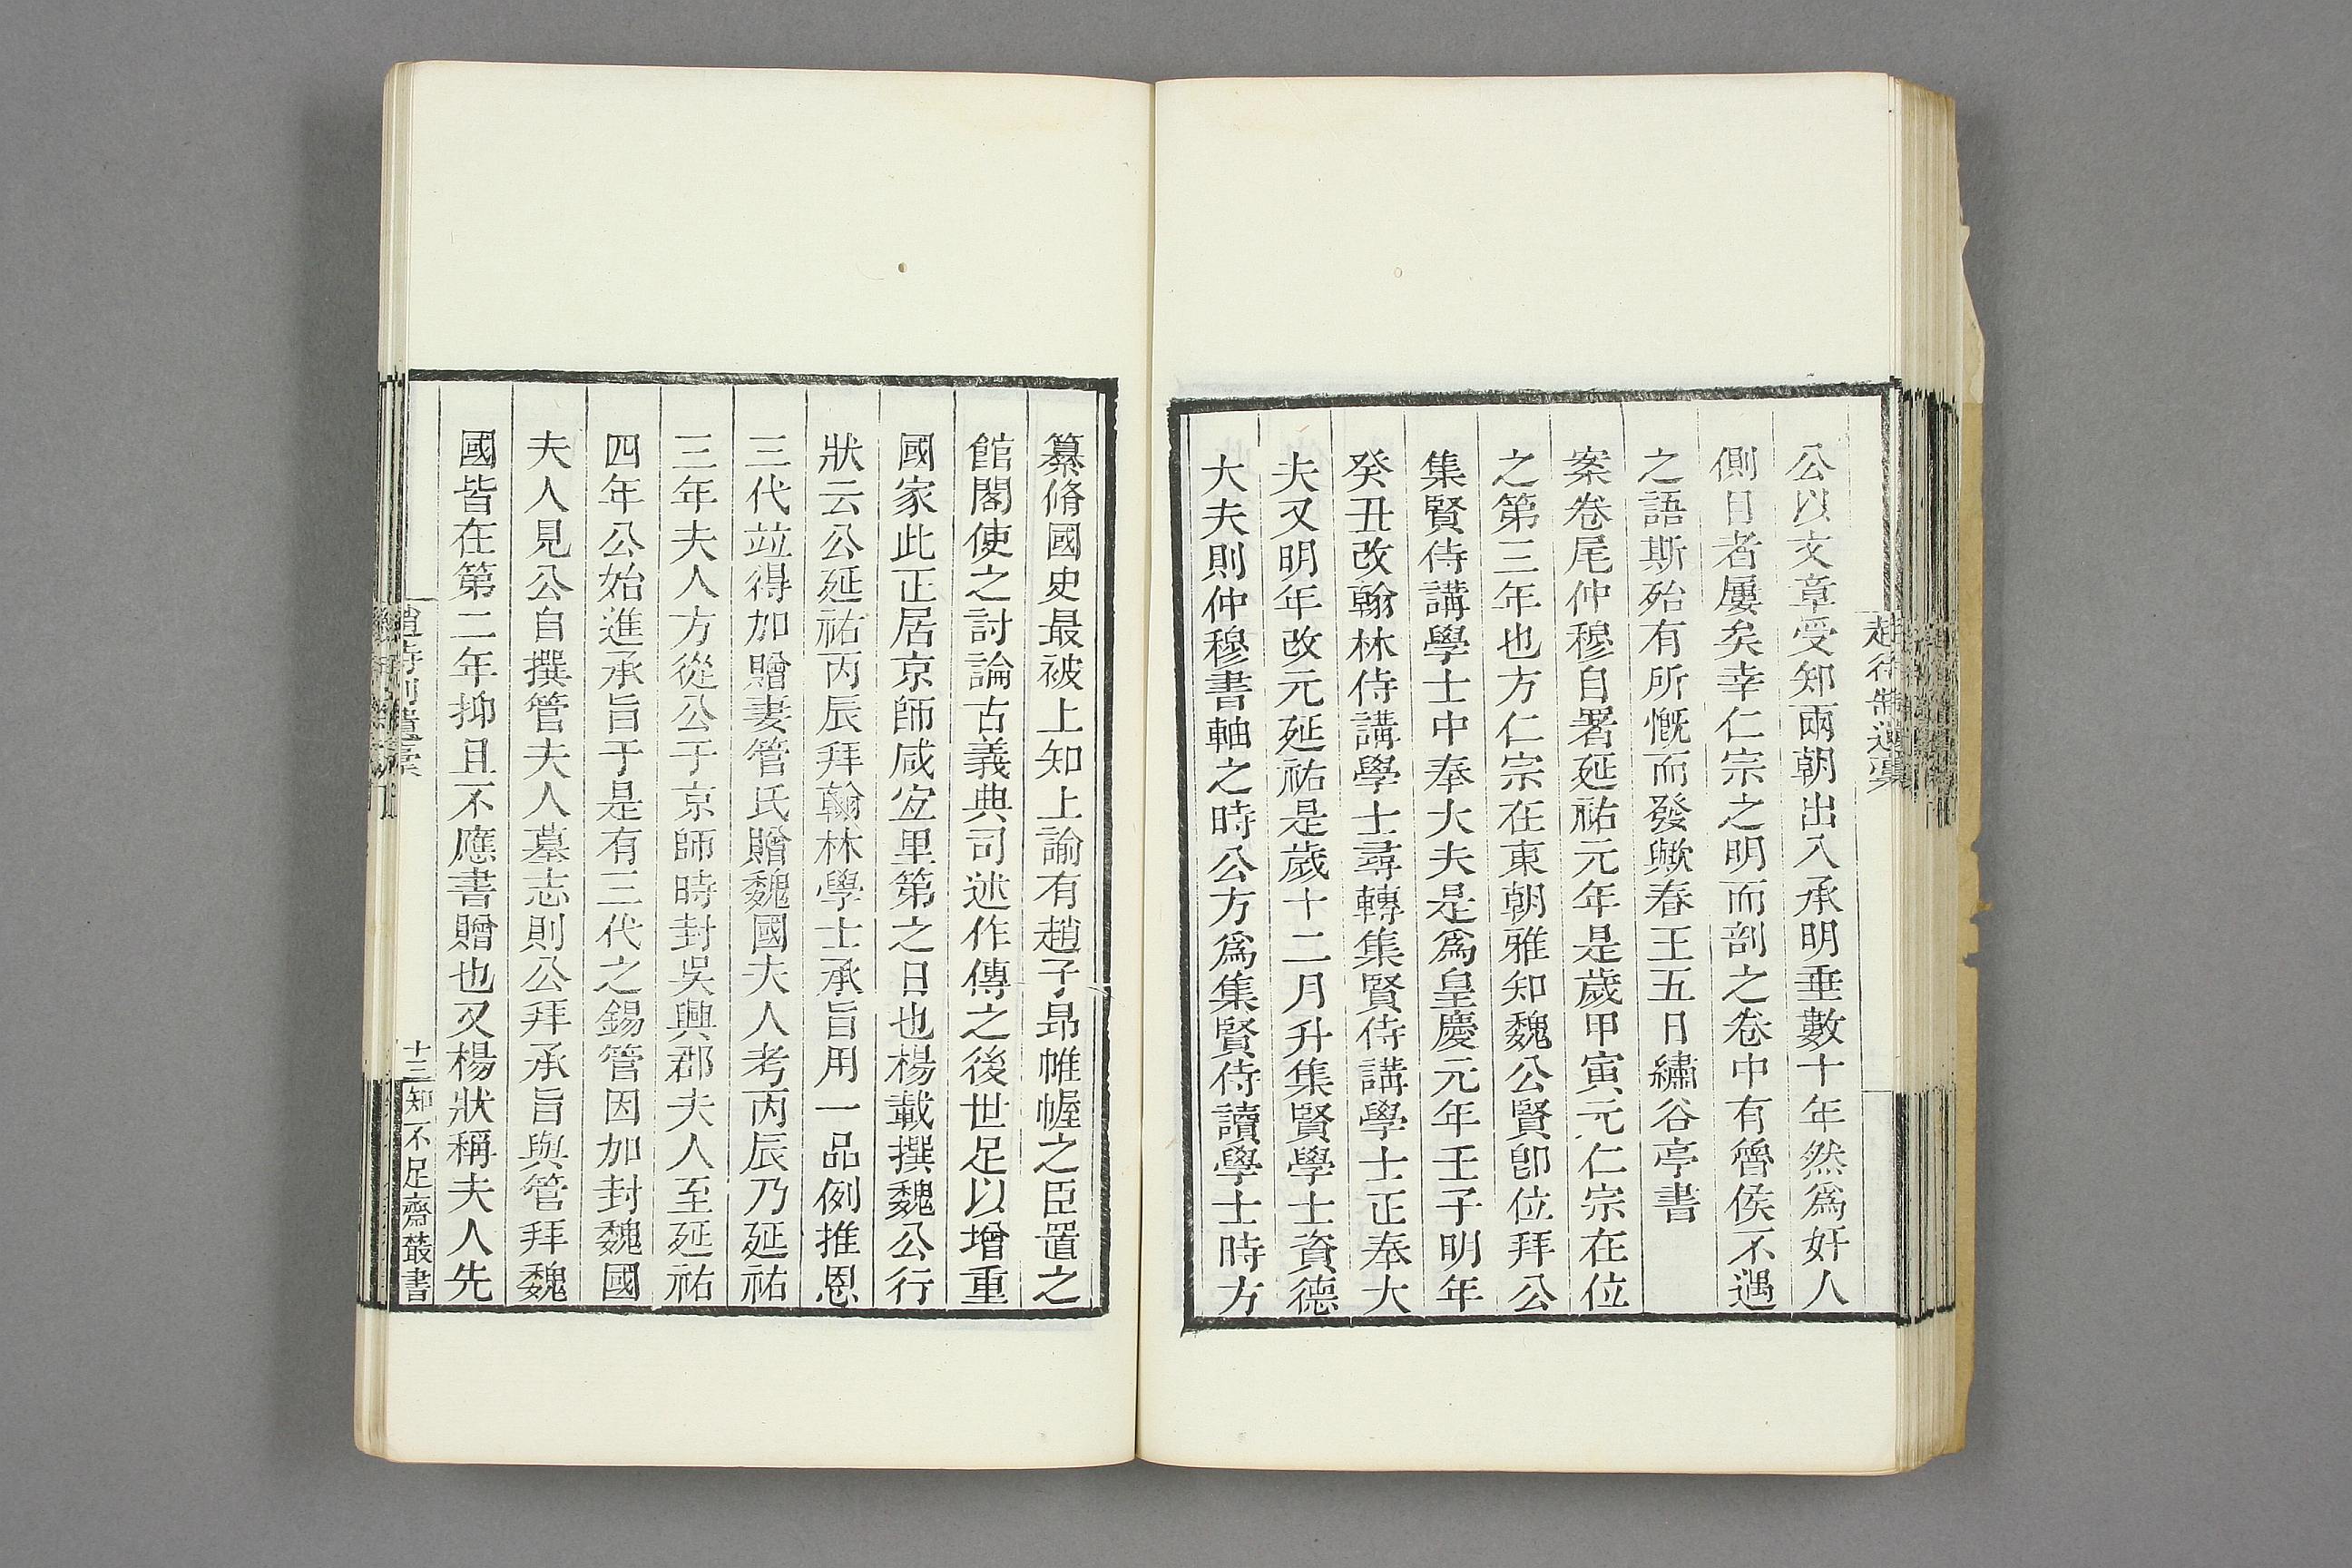 公以文章受知兩朝出入承明垂數十年然爲奸人
側目者屢矣幸仁宗之明而剖之卷中有魯侯不遇
之語斯殆有所慨而發歟春王五日繡谷亭書
案卷尾仲穆自署延祐元年是歲甲寅元仁宗在位
之第三年也方仁宗在東朝雅知魏公賢卽位拜公
集賢侍講學士中奉大夫是爲皇慶元年壬子明年
癸丑改翰林侍講學士尋轉集賢侍講學士正奉大
夫又明年改元延祐是歲十二月升集賢學士資德
大夫則仲穆書軸之時公方爲集賢侍讀學士時方
纂脩國史最被上知上諭有趙子昂帷幄之臣置之
館閣使之討論古義典司述作傳之後世足以增重
國家此正居京師咸宜里第之日也楊載撰魏公行
狀云公延祐丙辰拜翰林學士承旨用一品例推恩
三代竝得加贈妻管氏贈魏國夫人考丙辰乃延祐
三年夫人方從公于京師時封吳興郡夫人至延祐
四年公始進承旨于是有三代之錫管因加封魏國
夫人見公自撰管夫人墓志則公拜承旨與管拜魏
國皆在第二年抑且不應書贈也又楊狀稱夫人先
趙待制遺稾
十三
知不足齋叢書